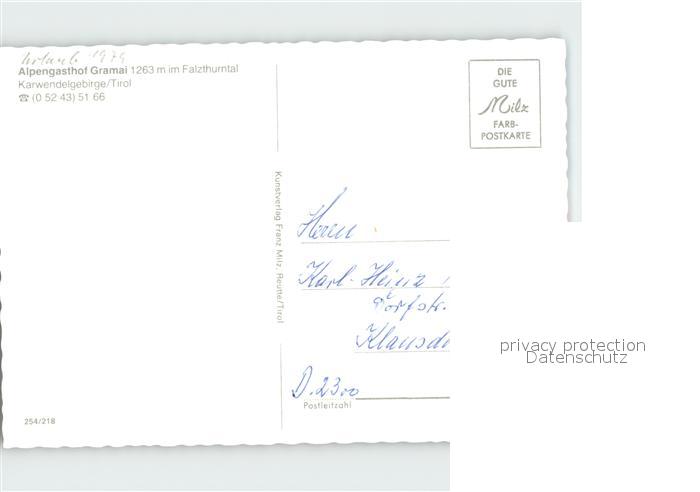 Urlaub 1979
Alpengasthof Gramai 1263 m im Falzthurntal
Karwendelgebirge/Tirol
☎ (0 52 43) 51 66
DIE
GUTE
Milz
FARB-
POSTKARTE
Kunstverlag Franz Milz, Reutte/Tirol
Herrn
Karl-Heinz
Dorfstr.
Klausd
D. 2300
Postleitzahl
254/218
privacy protection
Datenschutz